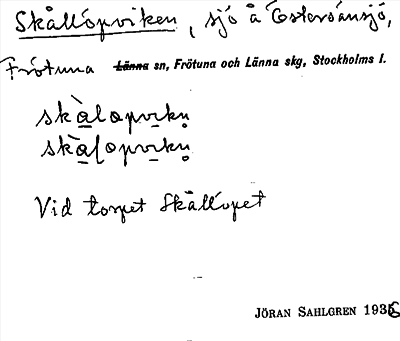 Skållöpviken, sjö å Östersånsjö,
Frötuna Länna sn, Frötuna och Länna skg, Stockholms l.
skàlapvikn
skàlapvikn
Vid torpet Skållöpet
JÖRAN SAHLGREN 1936